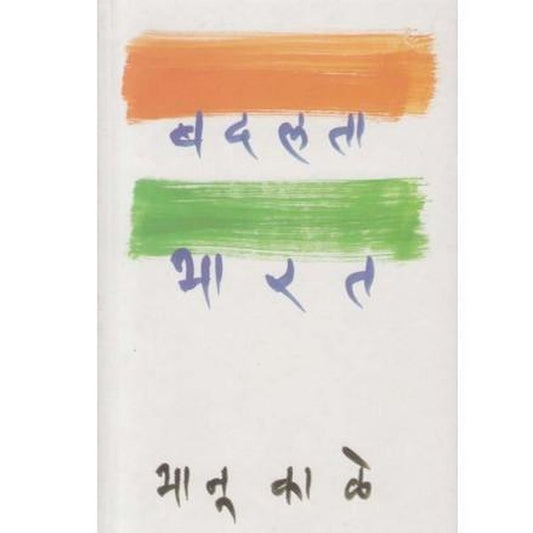 बदलता
भारत
भानू काळे